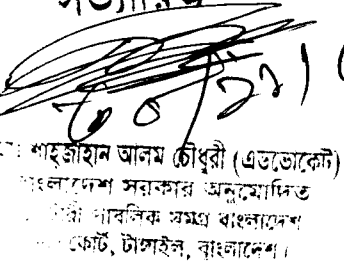 ৩০/১১/
শাহজাহান আলম চৌধুরী (এডভোকেট)
বাংলাদেশ সরকার অনুমোদিত
পাবলিক সমগ্র বাংলাদেশ
কোর্ট, টাঙ্গাইল, বাংলাদেশ।